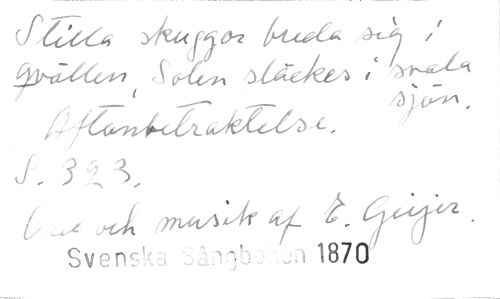 Stilla skuggor breda sig i
qvällen, Solen släckes i svala
sjön.
Aftonbetraktelse.
S. 323.
Ord och musik af E. Geijer.
Svenska Sångboken 1870